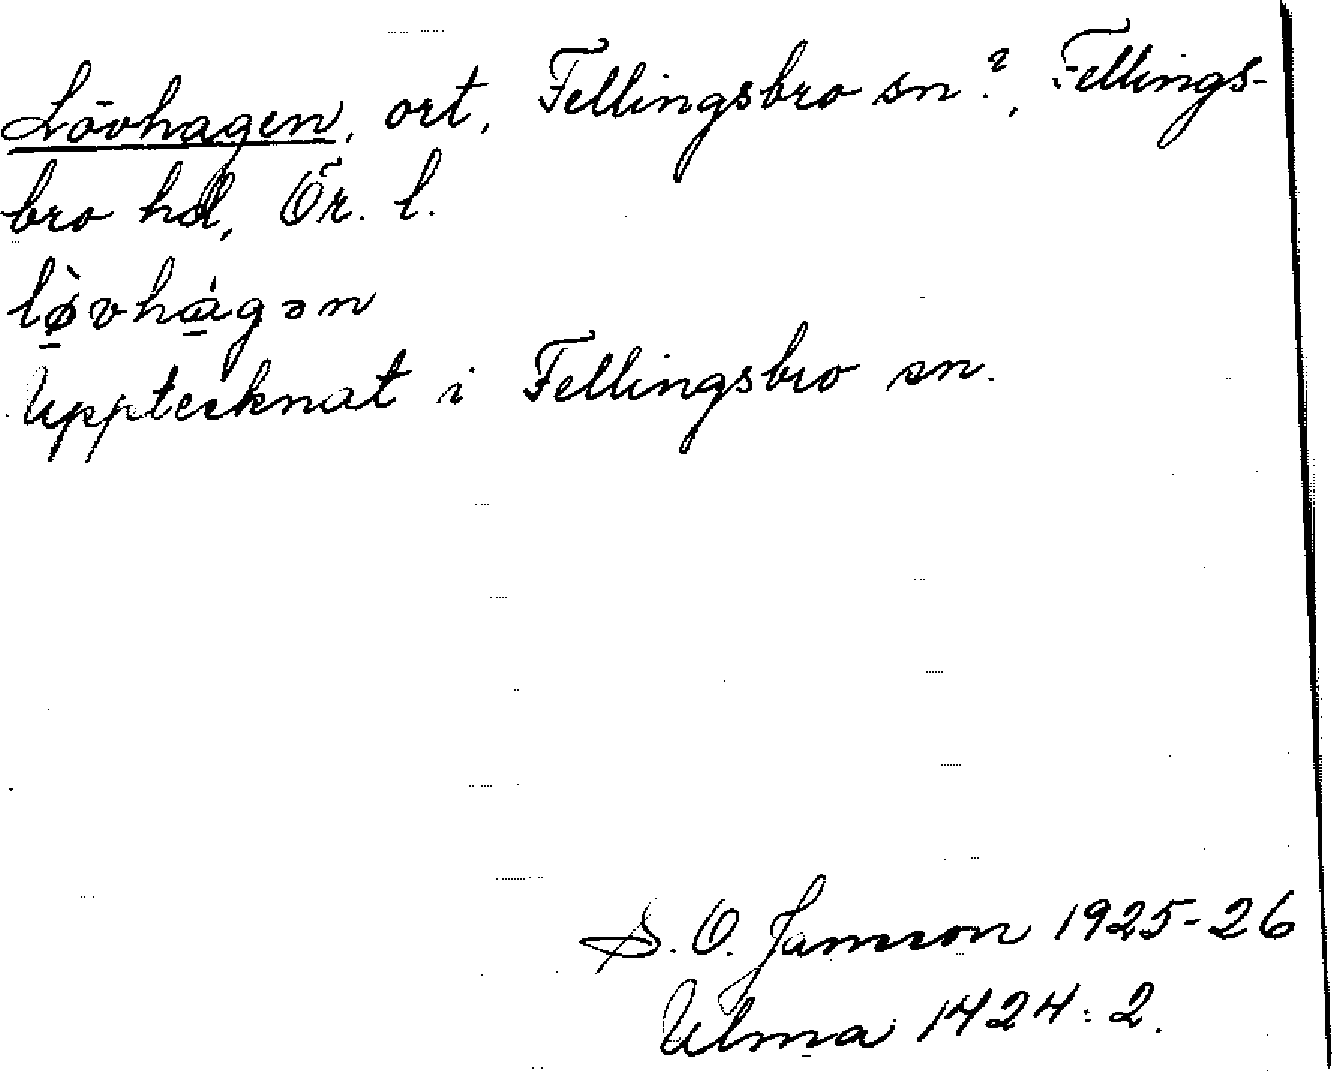 Lövhagen, ort, Fellingsbro sn?, Fellings-
bro hd, Ör. l.
lø̠̀vhà̠gən
Upptecknat i Fellingsbro sn.
S. O. Jansson 1925-26
Ulma 1424:2.